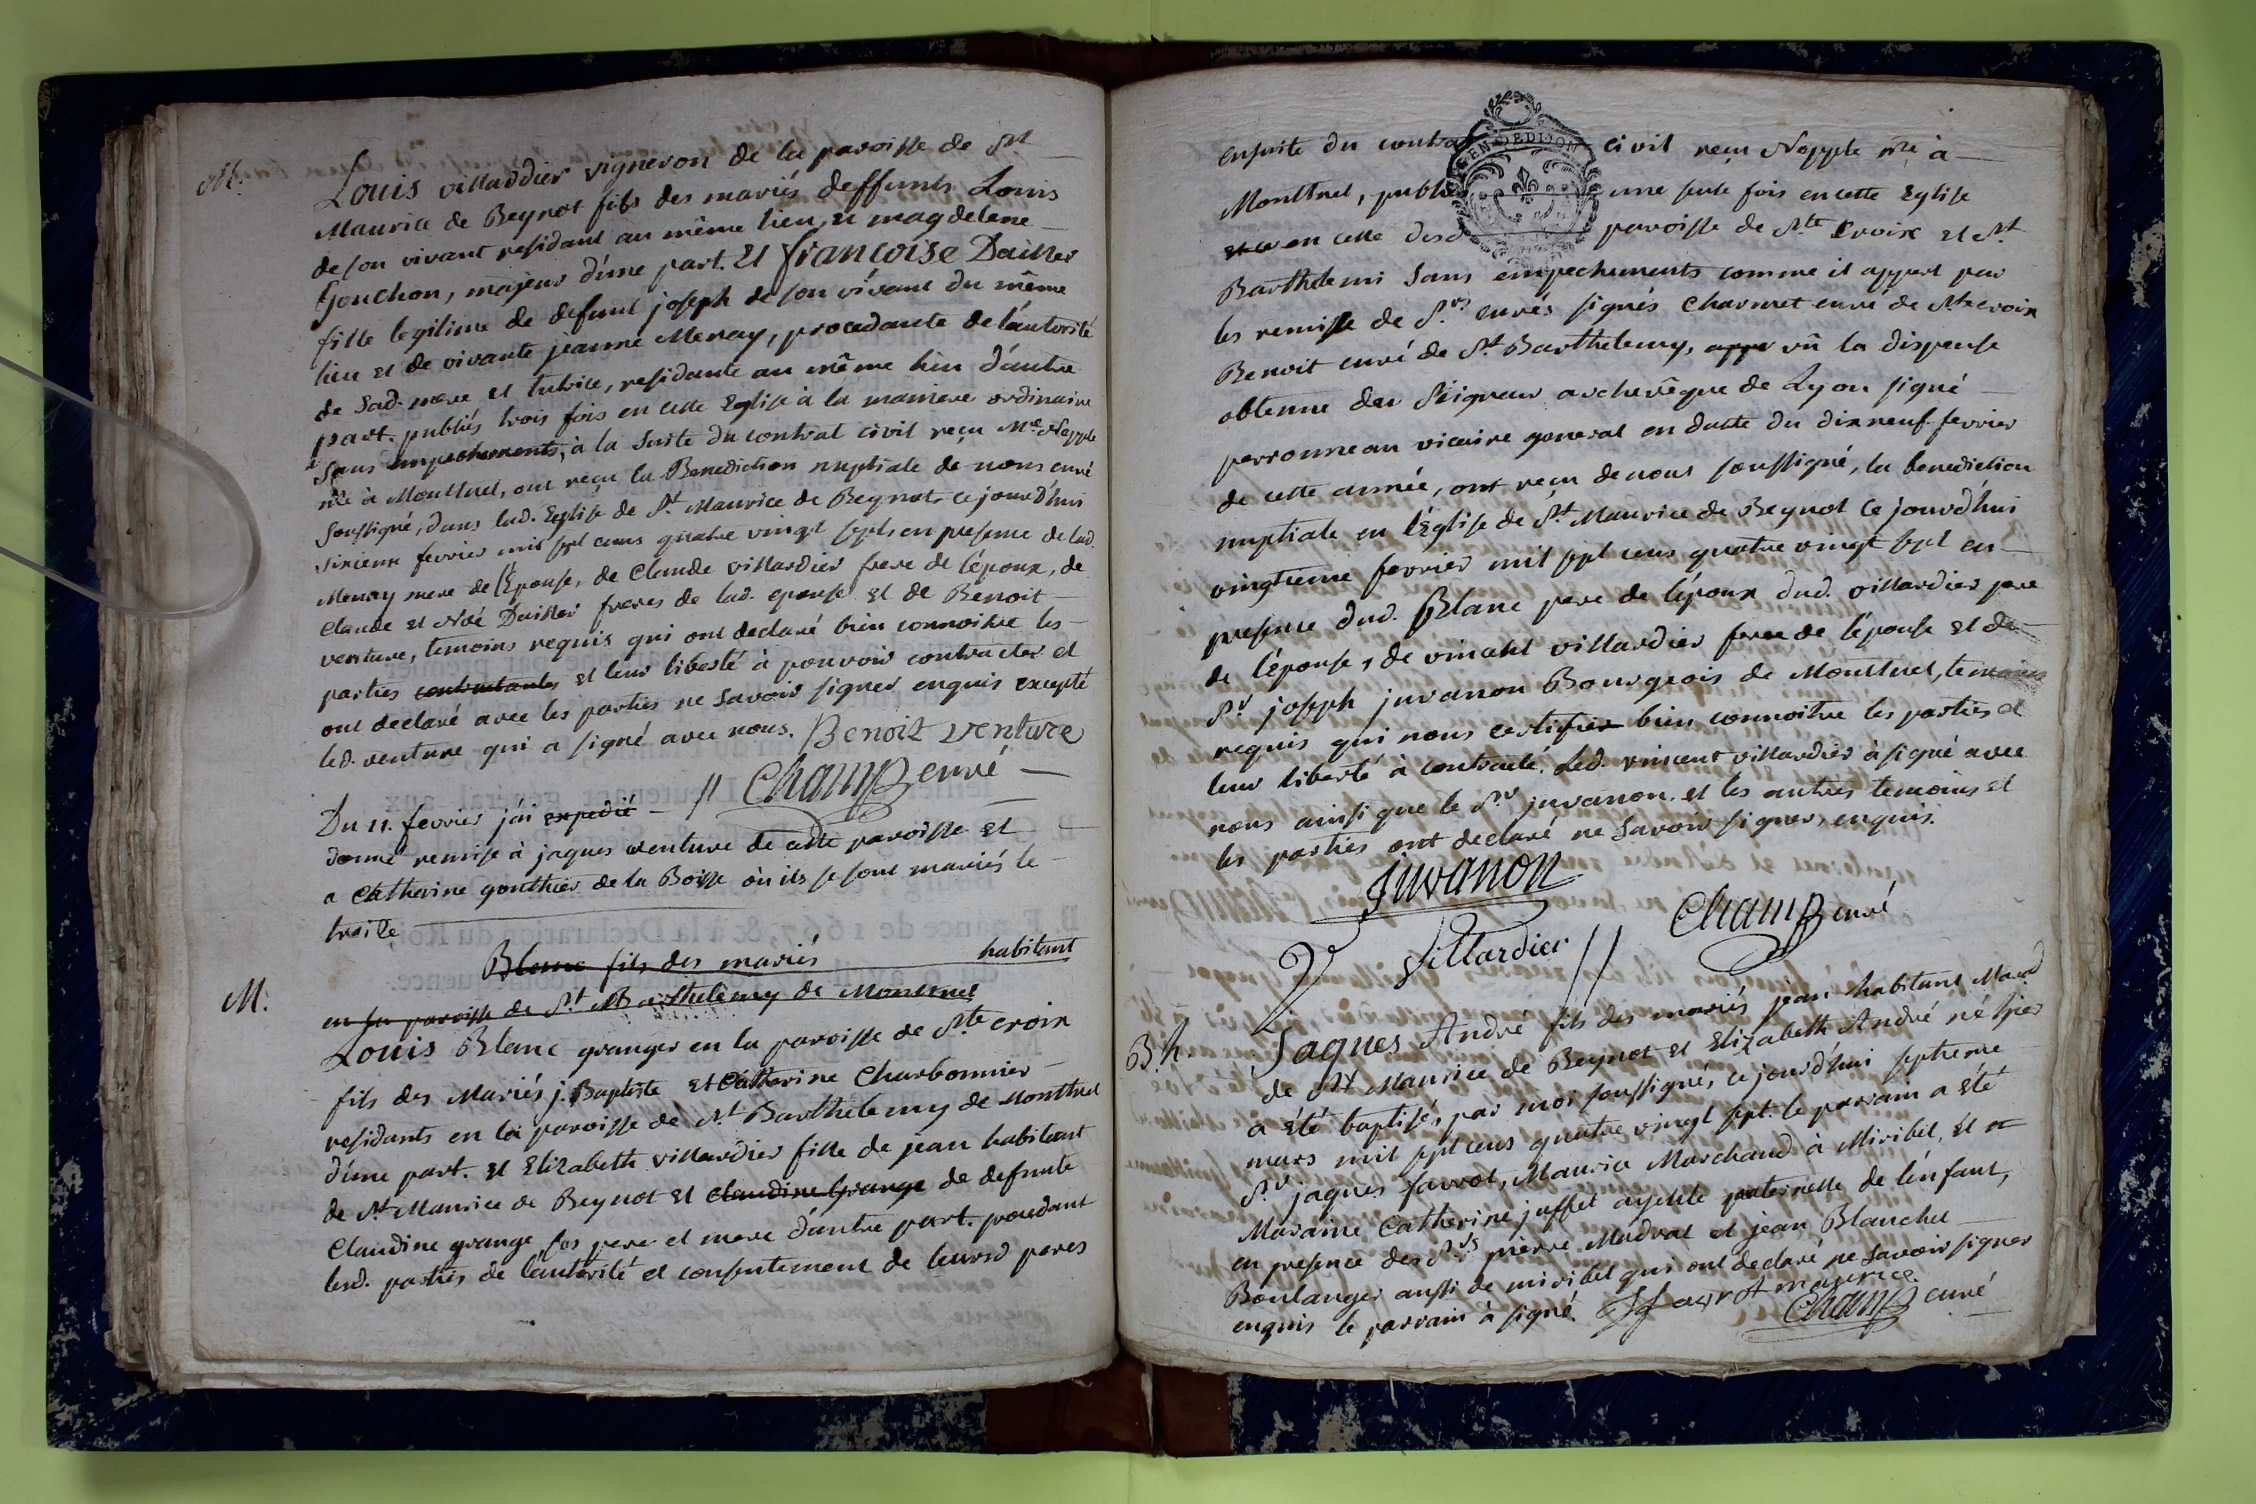 M.
Louis villaddier vigneron de la paroisse de St
Maurice de Beynot fils des mariés deffunts Louis
de son vivant residant au même lieu et magdelene
Gonchon, majeur d'une part. Et françoise Dailler
fille legitime de defunt joseph de son vivant du même
lieu et de vivante jeanne Menay, procedante de l'autorité
de sad. mere et tutrice, residante au même lieu d'autre
part. publiés trois fois en cette Eglise à la maniere ordinaire
sans empechements, à la suite du contrat civil reçu Me Nepple
nre à Montluel, ont reçu la Benediction nuptiale de nous curé
soussigné, dans lad. Eglise de St Maurice de Beynot ce jourd'hui
sixieme fevrier mil sept cens quatre vingt sept, en presence de lad.
Menay mere de l'Epouse, de Claude villardier frere de l'époux, de
Claude et Noé Dailler freres de lad. epouse et de Benoit
venture, temoins requis qui ont declaré bien connoitre les
parties contractantes et leur liberté à pouvoir contracter et
ont declaré avec les parties ne savoir signer enquis excepté
led. venture qui a signé avec nous. Benoit venture
// Champ curé
Du 11. fevrier j'ai expedié
donné remise à jaques venture de cette paroisse et
a Catherine gonthier de la Boisse où ils se sont mariés le
treize
Blanc fils des mariés habitant
en la paroisse de St Barthelemy de Montluel
M:
Louis Blanc granger en la paroisse de Ste croix
fils des Mariés j. Baptiste et Catherine Charbonnier
residants en la paroisse de St Barthelemy de Montluel
d'une part. et Elizabeth villardier fille de jean habitant
de St Maurice de Beynot et Claudine Grange de defunte
Claudine grange ses pere et mere d'autre part. procedant
lesd. parties de l'autorité et consentement de leursd peres
ensuite du contrat civil reçu Nepple nre à
Montluel, publiés une seule fois en cette Eglise
et en celle desd paroisse de Ste Croix et St
Barthelemi sans empechements comme il appert par
les remise de Srs curés signés Charmet curé de Ste croix
Benoit curé de St Barthelemy, appr vû la dispense
obtenue du Seigneur archevêque de Lyon signé
perronneau vicaire general en datte du dix neuf fevrier
de cette année, ont reçu de nous soussigné, la benediction
nuptiale en l'Eglise de St Maurice de Beynot ce jourd'hui
vingtieme fevrier mil sept cens quatre vingt sept en
presence dud. Blanc pere de l'époux dud. villardier pere
de l'épouse, de vincent villardier frere de l'épouse et de
Sr joseph juvanon Bourgeois de Montluel, temoins
requis qui nous certifier bien connoitre les parties et
leur liberté à contracté. Led. vincent villardier à signé avec
nous ainsi que le Sr juvanon. et les autres temoins et
les parties ont declaré ne savoir signer, enquis.
Juvanon
V villardier // Champ curé
B. h.
Jaques André fils des mariés jean habitant
de St Maurice de Beynot et Elizabeth André né hier
a été baptisé, par moi soussigné, ce jourd'hui septieme
mars mil sept cens quatre vingt sept. le parrain a été
Sr jaques favrot, Maurice Marchand à Miribel, et
Maraine Catherine juffet ayeule paternelle de l'enfant,
en presence des Srs pierre Madrat et jean Blanchet
Boulanger aussi de miribel qui ont declaré ne savoir signer
enquis le parrain à signé. maurice
Champ curé